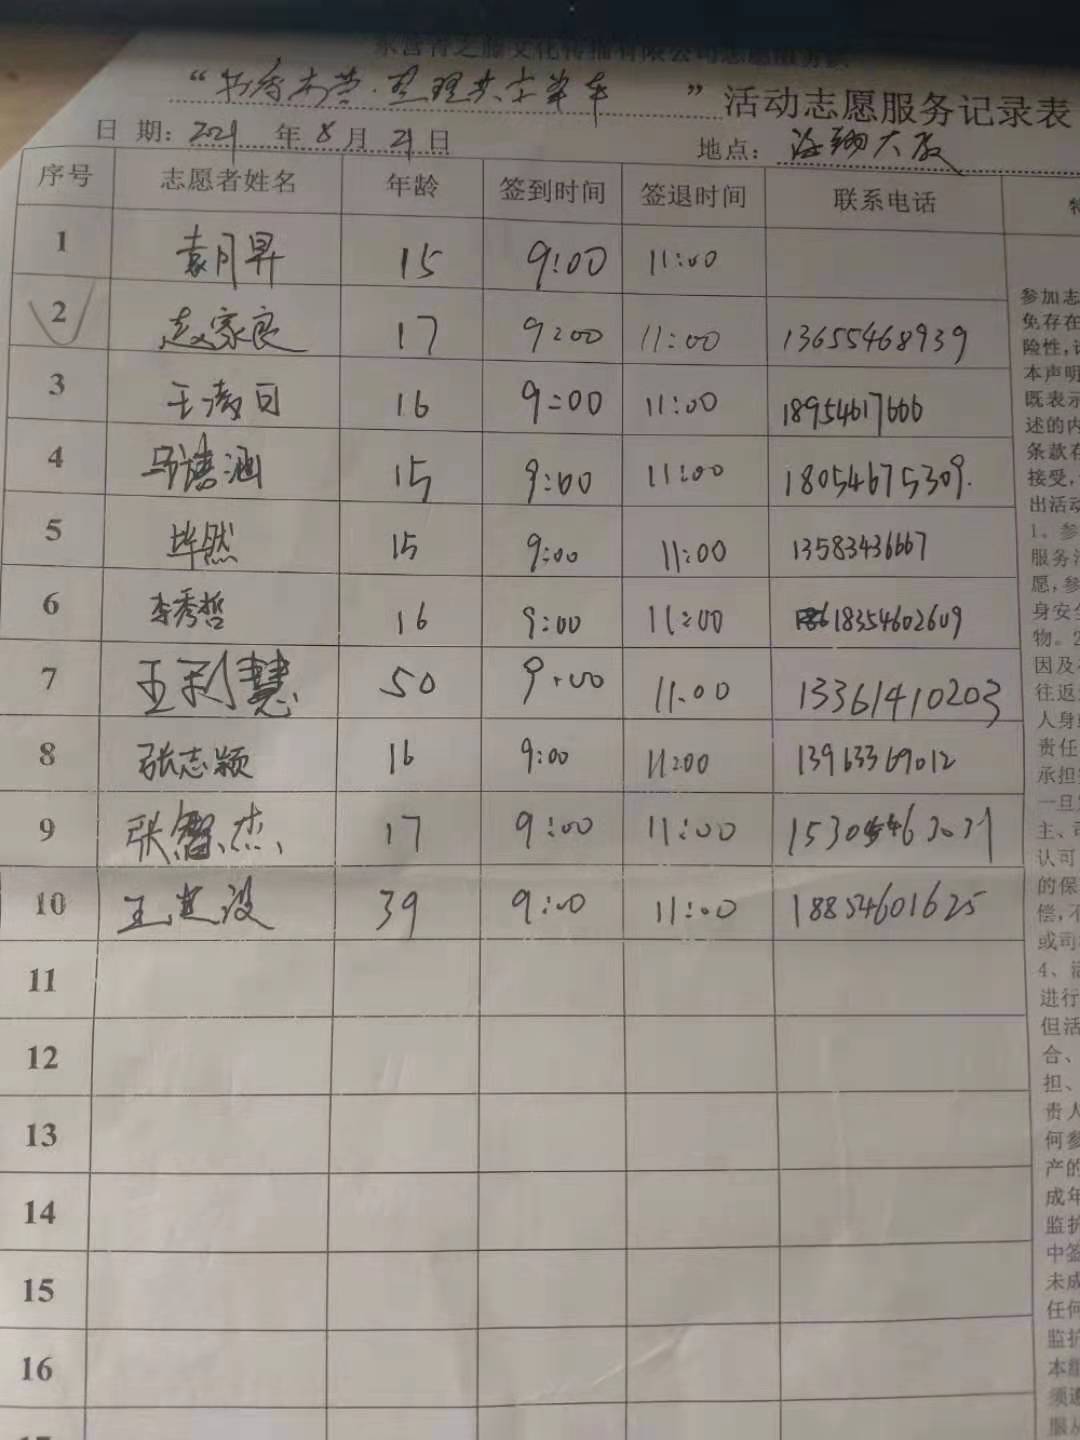 “书香东营·整理共享单车”活动志愿服务记录表
日 期: 2021 年 8 月 21 日 地点: 海翔大厦
序号 志愿者姓名 年龄 签到时间 签退时间 联系电话
1 袁月昇 15 9:00 11:00
2 赵家良 17 9:00 11:00 13655468939
3 王 16 9:00 11:00 18954617666
4 马 涵 15 9:00 11:00 18054675309.
5 毕然 15 9:00 11:00 13583436667
6 李秀哲 16 9:00 11:00 18354602609
7 王利慧 50 9:00 11:00 13361410203
8 张志颖 16 9:00 11:00 13963369012
9 张智杰 17 9:00 11:00
10 王建设 39 9:00 11:00 18854601625
11
12
13
14
15
16
参加志
免存在
险性,
本声明
既表示
述的内
条款在
接受,
出活动
1、参
服务活
愿,参
身安全
物。2
因及
往返
人身
责任
承担
一旦
主、
认可
的保
偿,不
或司
4、活
进行
但活
合、
担、
责人
何参
产的
成年
监护
中签
未成
任何
监护
本组
须遵
服从